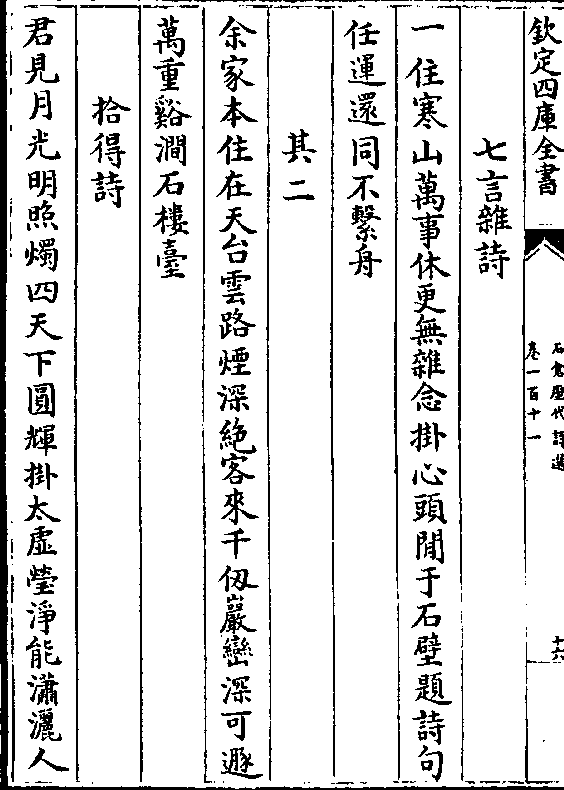 欽定四庫全書
石倉歷代詩選
卷一百十一
十六
七言雜詩
一住寒山萬事休更無雜念掛心頭閒于石壁題詩句
任運還同不繫舟
其二
余家本住在天台雲路煙深絶客來千仭巖巒深可遯
萬重谿澗石樓臺
拾得詩
君見月光明照燭四天下圓輝掛太虛瑩淨能瀟灑人